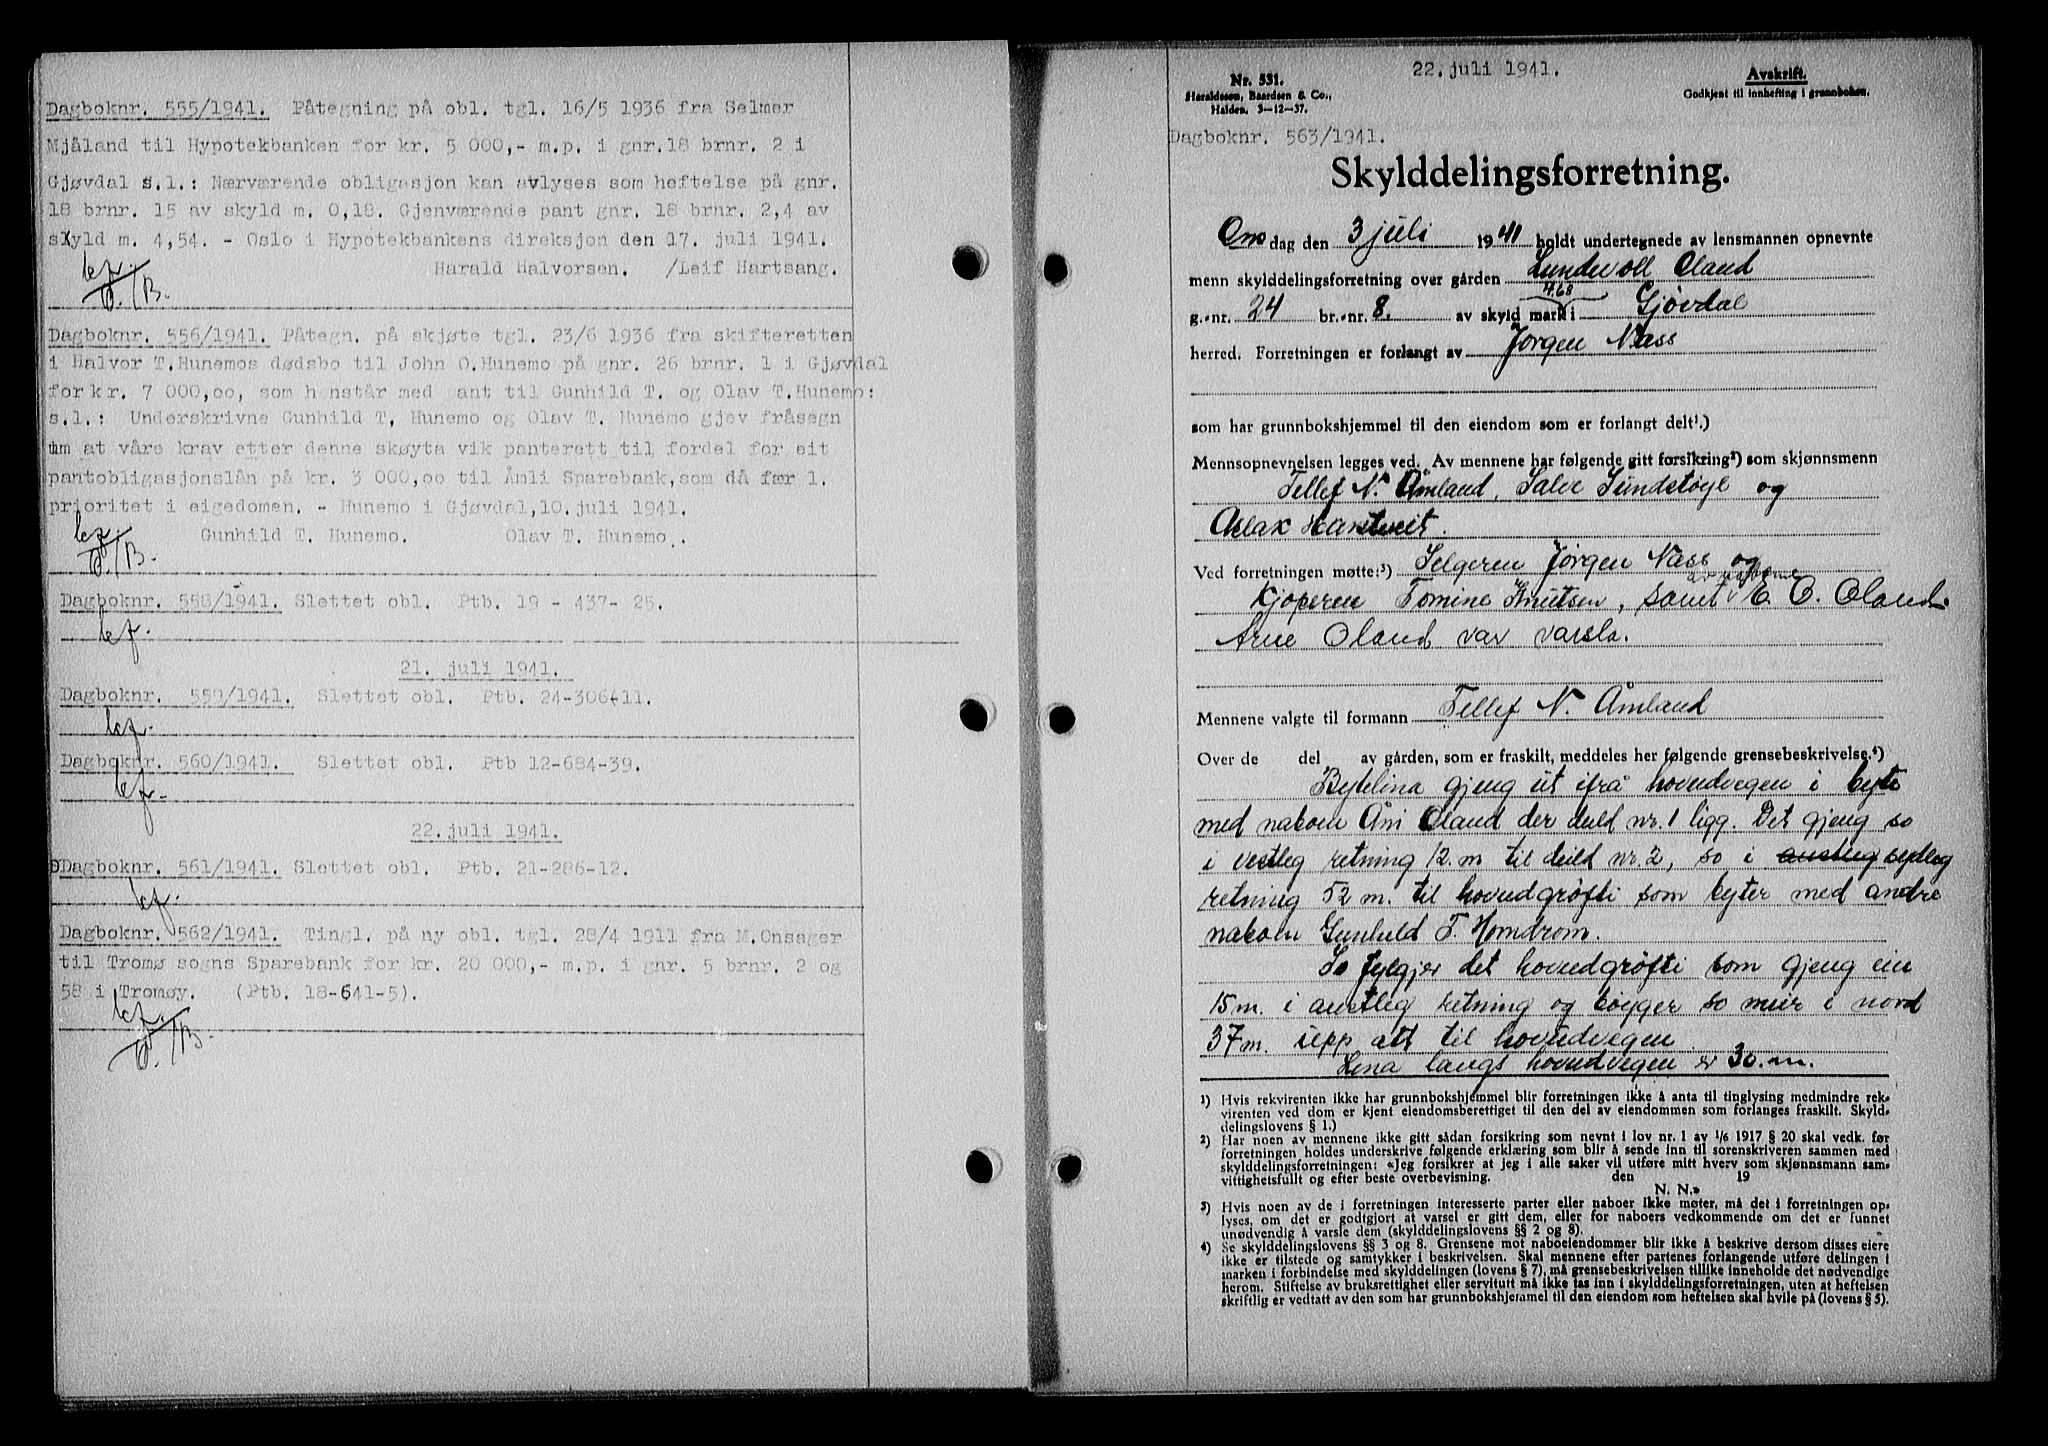 Dagboknr. 555/1941. Påtegning på obl. tgl. 16/5 1936 fra Selmer
Mjåland til Hypotekbanken for kr. 5 000,- m.p. i gnr.18 brnr. 2 i
Gjøvdal s.l.: Nærværende obligasjon kan avlyses som heftelse på gnr.
18 brnr. 15 av skyld m. 0,18. Gjenværende pant gnr. 18 brnr. 2,4 av
skyld m. 4,54. - Oslo i Hypotekbankens direksjon den 17. juli 1941.
Harald Halvorsen. /Leif Hartsang.
Dagboknr. 556/1941. Påtegn. på skjøte tgl. 23/6 1936 fra skifteretten
i Halvor T.Hunemos dødsbo til John O.Hunemo på gnr. 26 brnr. 1 i Gjøvdal
for kr. 7 000,oo, som henstår med pant til Gunhild T. og Olav T.Hunemo:
s.l.: Underskrivne Gunhild T, Hunemo og Olav T. Hunemo gjev fråsegn
um at våre krav etter denne skøyta vik panterett til fordel for eit
pantobligasjonslån på kr. 3 000,oo til Åmli Sparebank,som då fær 1.
prioritet i eigedomen. - Hunemo i Gjøvdal,10.juli 1941.
Gunhild T. Hunemo. Olav T. Hunemo..
Dagboknr. 558/1941. Slettet obl. Ptb. 19 - 437- 25.
21. juli 1941.
Dagboknr. 559/1941. Slettet obl. Ptb. 24-306-11.
Dagboknr. 560/1941. Slettet obl. Ptb 12-684-39.
22.juli 1941.
Dagboknr. 561/1941. Slettet obl. Ptb. 21-286-12.
Dagboknr. 562/1941. Tingl. på ny obl. tgl. 28/4 1911 fra M.Onsager
til Tromø sogns Sparebank for kr. 20 000,- m.p. i gnr. 5 brnr. 2 og
58 i Tromøy. (Ptb. 18-641-5).
22.juli 1941.
Nr. 531.
Haraldssen, Baardsen & Co.,
Halden. 3-12-37.
Avskrift.
Godkjent til innhefting i grunnboken.
Dagboknr. 563/1941.
Skylddelingsforretning.
Ons dag den 3 juli 1941 holdt undertegnede av lensmannen opnevnte
menn skylddelingsforretning over gården Lundevoll Oland
g.-nr. 24 br.-nr. 8. av skyld mark 4.68 i Gjøvdal
herred. Forretningen er forlangt av Jørgen Næss
som har grunnbokshjemmel til den eiendom som er forlangt delt¹.)
Mennsopnevnelsen legges ved. Av mennene har følgende gitt forsikring²) som skjønnsmenn
Tellef N. Åmland, Salve Sundstøyl og
Aslax Hanstveit.
Ved forretningen møtte:³) Selgeren Jørgen Næss og
Kjøperen Tomine Knutsen, samt av naboene E. O. Oland.
Arne Oland var varsla.
Mennene valgte til formann Tellef N. Åmland
Over de del av gården, som er fraskilt, meddeles her følgende grensebeskrivelse.⁴)
Bytelina gjeng ut ifrå hovudvegen i byte
med naboen Åni Oland der deild nr. 1 ligg. Det gjeng so
i vestleg retning 12. m til deild nr. 2, so i austleg sydleg
retning 52 m. til hovudgrøfti som byter med andre
naboen Gunhild T. Homdrom.
So fylgjer det hovudgrøfti som gjeng ein
15 m. i austleg retning og bøygger so meir i nord
37 m. upp att til hovudvegen
Lina langs hovudvegen er 30. m.
¹) Hvis rekvirenten ikke har grunnbokshjemmel blir forretningen ikke å anta til tinglysing medmindre rek-
virenten ved dom er kjent eiendomsberettiget til den del av eiendommen som forlanges fraskilt. Skyld-
delingslovens § 1.)
²) Har noen av mennene ikke gitt sådan forsikring som nevnt i lov nr. 1 av 1/6 1917 § 20 skal vedk. før
forretningen holdes underskrive følgende erklæring som blir å sende inn til sorenskriveren sammen med
skylddelingsforretningen: «Jeg forsikrer at jeg i alle saker vil utføre mitt hverv som skjønnsmann sam-
vittighetsfullt og efter beste overbevisning. den 19
N. N.»
³) Hvis noen av de i forretningen interesserte parter eller naboer ikke møter, må det i forretningen op-
lyses, om det er godtgjort at varsel er gitt dem, eller for naboers vedkommende om det er funnet
unødvendig å varsle dem (skylddelingslovens §§ 2 og 8).
⁴) Se skylddelingslovens §§ 3 og 8. Grensene mot naboeiendommer blir ikke å beskrive dersom disses eiere
ikke er tilstede og samtykker i beskrivelsen. Skal mennene efter partenes forlangende utføre delingen i
marken i forbindelse med skylddelingen (lovens § 7), må grensebeskrivelsen tillike inneholde det nødvendige
herom. Stiftelse av bruksrettighet eller servitutt må ikke tas inn i skylddelingsforretningen, uten at heftelsen
skriftlig er vedtatt av den som har grunnbokshjemmel til den eiendom som heftelsen skal hvile på (lovens § 5).